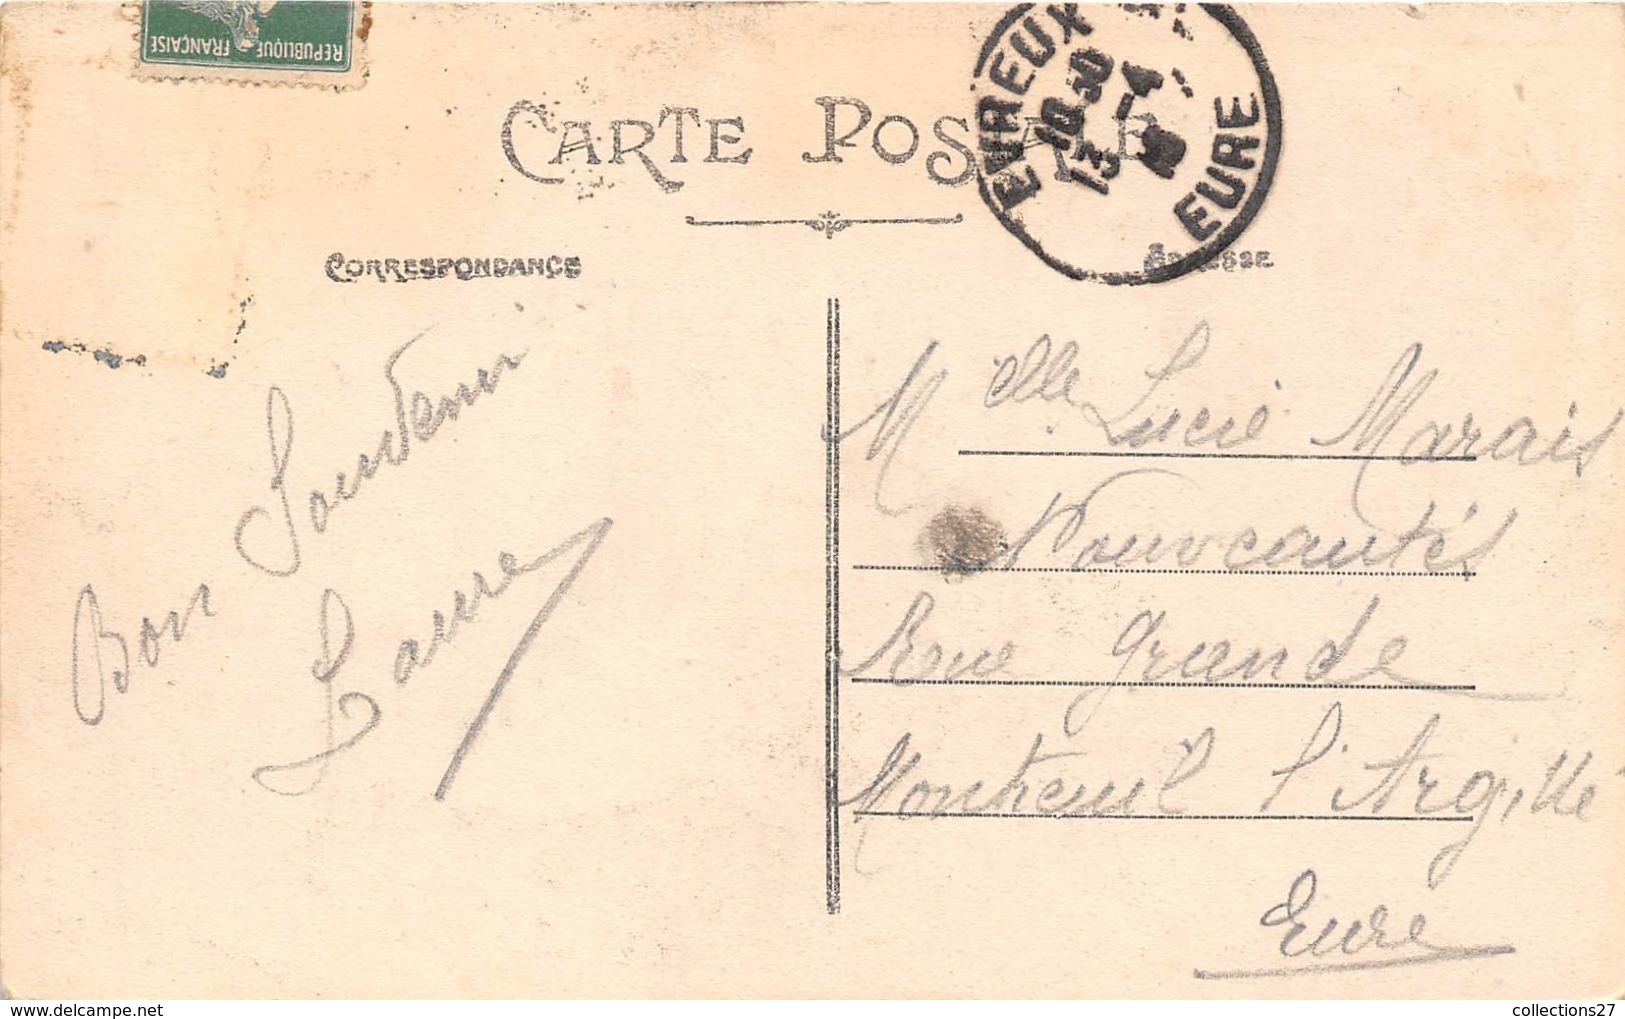 REPUBLIQUE FRANÇAISE
CARTE POSTALE
EVREUX
10 30
13 -4
EURE
CORRESPONDANCE
ADRESSE
Bon Souvenir
Laure
Melle Lucie Marais
Nouveautés
Rue Grande
Montreuil l'Argillé
Eure
collections27